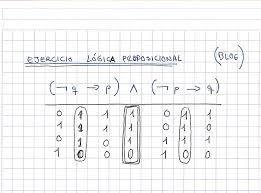 EJERCICIO LÓGICA PROPOSICIONAL (BLOG)
(¬q → p) ∧ (¬p → q)
0 1 1 1 0 1 1
1 1 1 1 0 1 0
0 1 0 1 1 1 1
1 0 0 0 1 0 0